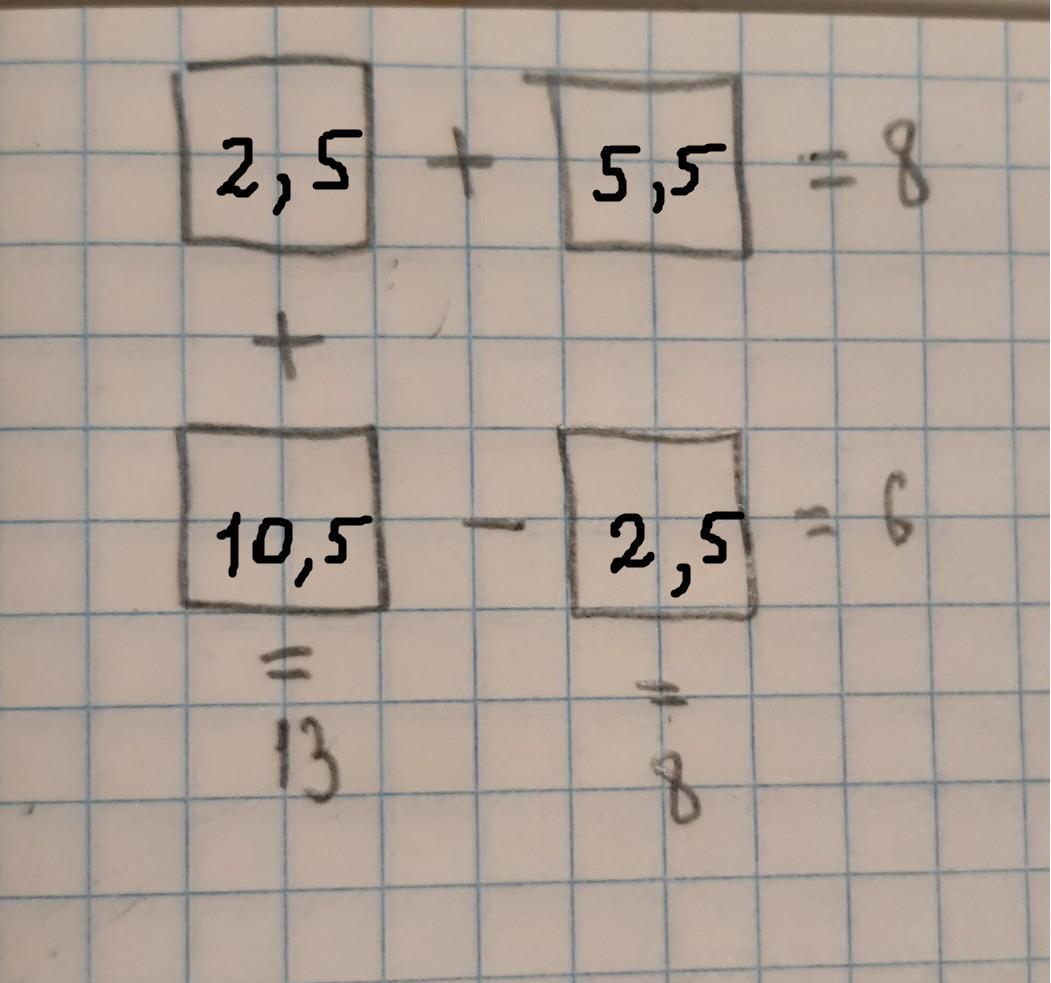 2,5 + 5,5 = 8
+
10,5 - 2,5 = 6
= =
13 8